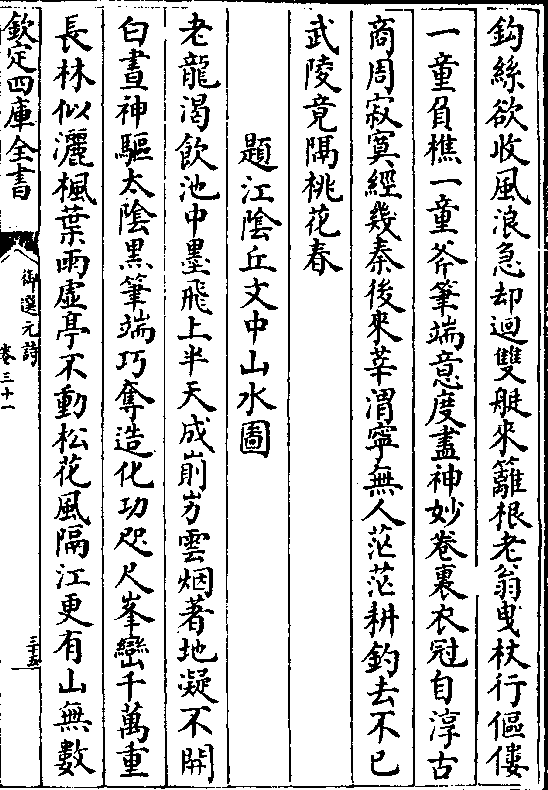 鈎絲欲收風浪急却迴雙艇來籬根老翁曳杖行傴僂
一童負樵一童斧筆端意度盡神妙卷裏衣冠自淳古
商周寂寞經幾秦後來莘渭寧無人茫茫耕釣去不已
武陵竟隔桃花春
題江陰丘文中山水圖
老龍渴飲池中墨飛上半天成崱屴雲烟著地凝不開
白晝神驅太陰黑筆端巧奪造化功咫尺峯巒千萬重
長林似灑楓葉雨虚亭不動松花風隔江更有山無數
欽定四庫全書
御選元詩
卷三十一
三十五